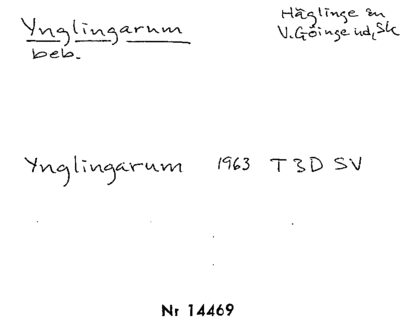 Ynglingarum
beb.
Häglinge sn
V. Göinge hd, Sk
Ynglingarum 1963 T3D SV
Nr 14469